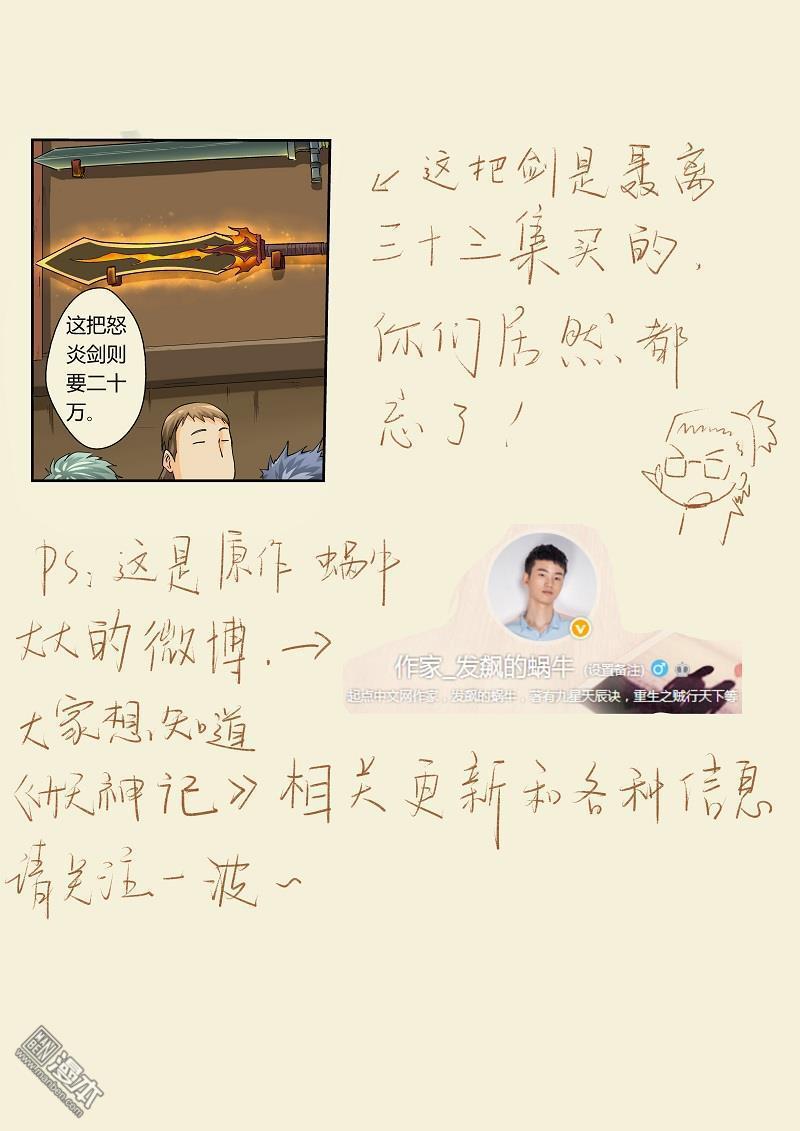 这把怒
炎剑则
要二十
万。
↙这把剑是聂离
三十三集买的，
你们居然都
忘了！
PS：这是原作 蜗牛
大大的微博，→
作家_发飙的蜗牛 (设置备注)
起点中文网作家，发飙的蜗牛，著有九星天辰诀，重生之贼行天下等
大家想知道
《妖神记》相关更新和各种信息
请关注一波~
MAN
BEN 漫本
www.manben.com